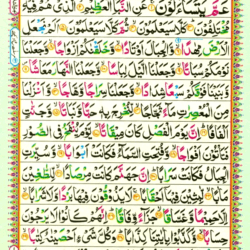 عَمَّ يَتَسَآءَلُوْنَ ۚ عَنِ النَّبَاِ الْعَظِيْمِ ۙ الَّذِيْ هُمْ فِيْهِ
مُخْتَلِفُوْنَ ؕ كَلَّا سَيَعْلَمُوْنَ ۙ ثُمَّ كَلَّا سَيَعْلَمُوْنَ اَلَمْ نَجْعَلِ
الْاَرْضَ مِهٰدًا ۙ وَّالْجِبَالَ اَوْتَادًا ۪ۙ وَّخَلَقْنٰكُمْ اَزْوَاجًا ۙ وَّجَعَلْنَا
نَوْمَكُمْ سُبَاتًا ۙ وَّجَعَلْنَا الَّيْلَ لِبَاسًا ۙ وَّجَعَلْنَا النَّهَارَ مَعَاشًا
وَّبَنَيْنَا فَوْقَكُمْ سَبْعًا شِدَادًا ۙ وَّجَعَلْنَا سِرَاجًا وَّهَّاجًا ۪ۙ وَّاَنْزَلْنَا
مِنَ الْمُعْصِرٰتِ مَآءً ثَجَّاجًا ۙ لِّنُخْرِجَ بِهٖ حَبًّا وَّنَبَاتًا ۙ وَّجَنّٰتٍ
اَلْفَافًا ؕ اِنَّ يَوْمَ الْفَصْلِ كَانَ مِيْقَاتًا ۙ يَّوْمَ يُنْفَخُ فِي الصُّوْرِ
فَتَاْتُوْنَ اَفْوَاجًا ۙ وَّفُتِحَتِ السَّمَآءُ فَكَانَتْ اَبْوَابًا ۙ وَّسُيِّرَتِ
الْجِبَالُ فَكَانَتْ سَرَابًا ؕ اِنَّ جَهَنَّمَ كَانَتْ مِرْصَادًا ۪ۙ لِّلطَّاغِيْنَ
مَاٰبًا ۙ لّٰبِثِيْنَ فِيْهَاۤ اَحْقَابًا ۚ لَا يَذُوْقُوْنَ فِيْهَا بَرْدًا وَّلَا شَرَابًا
اِلَّا حَمِيْمًا وَّغَسَّاقًا ۙ جَزَآءً وِّفَاقًا ؕ اِنَّهُمْ كَانُوْا لَا يَرْجُوْنَ
حِسَابًا ۙ وَّكَذَّبُوْا بِاٰيٰتِنَا كِذَّابًا ؕ وَكُلَّ شَيْءٍ اَحْصَيْنٰهُ كِتٰبًا